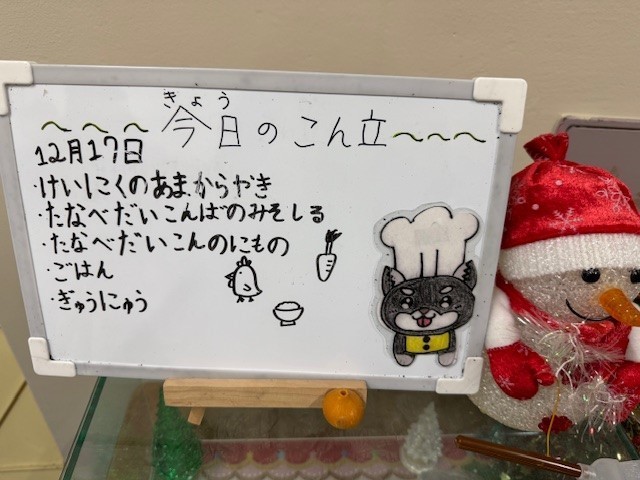 きょう
~~~今日のこん立~~~
12月17日
・けいにくのあまからやき
・たなべだいこんばのみそしる
・たなべだいこんのにもの
・ごはん
・ぎゅうにゅう